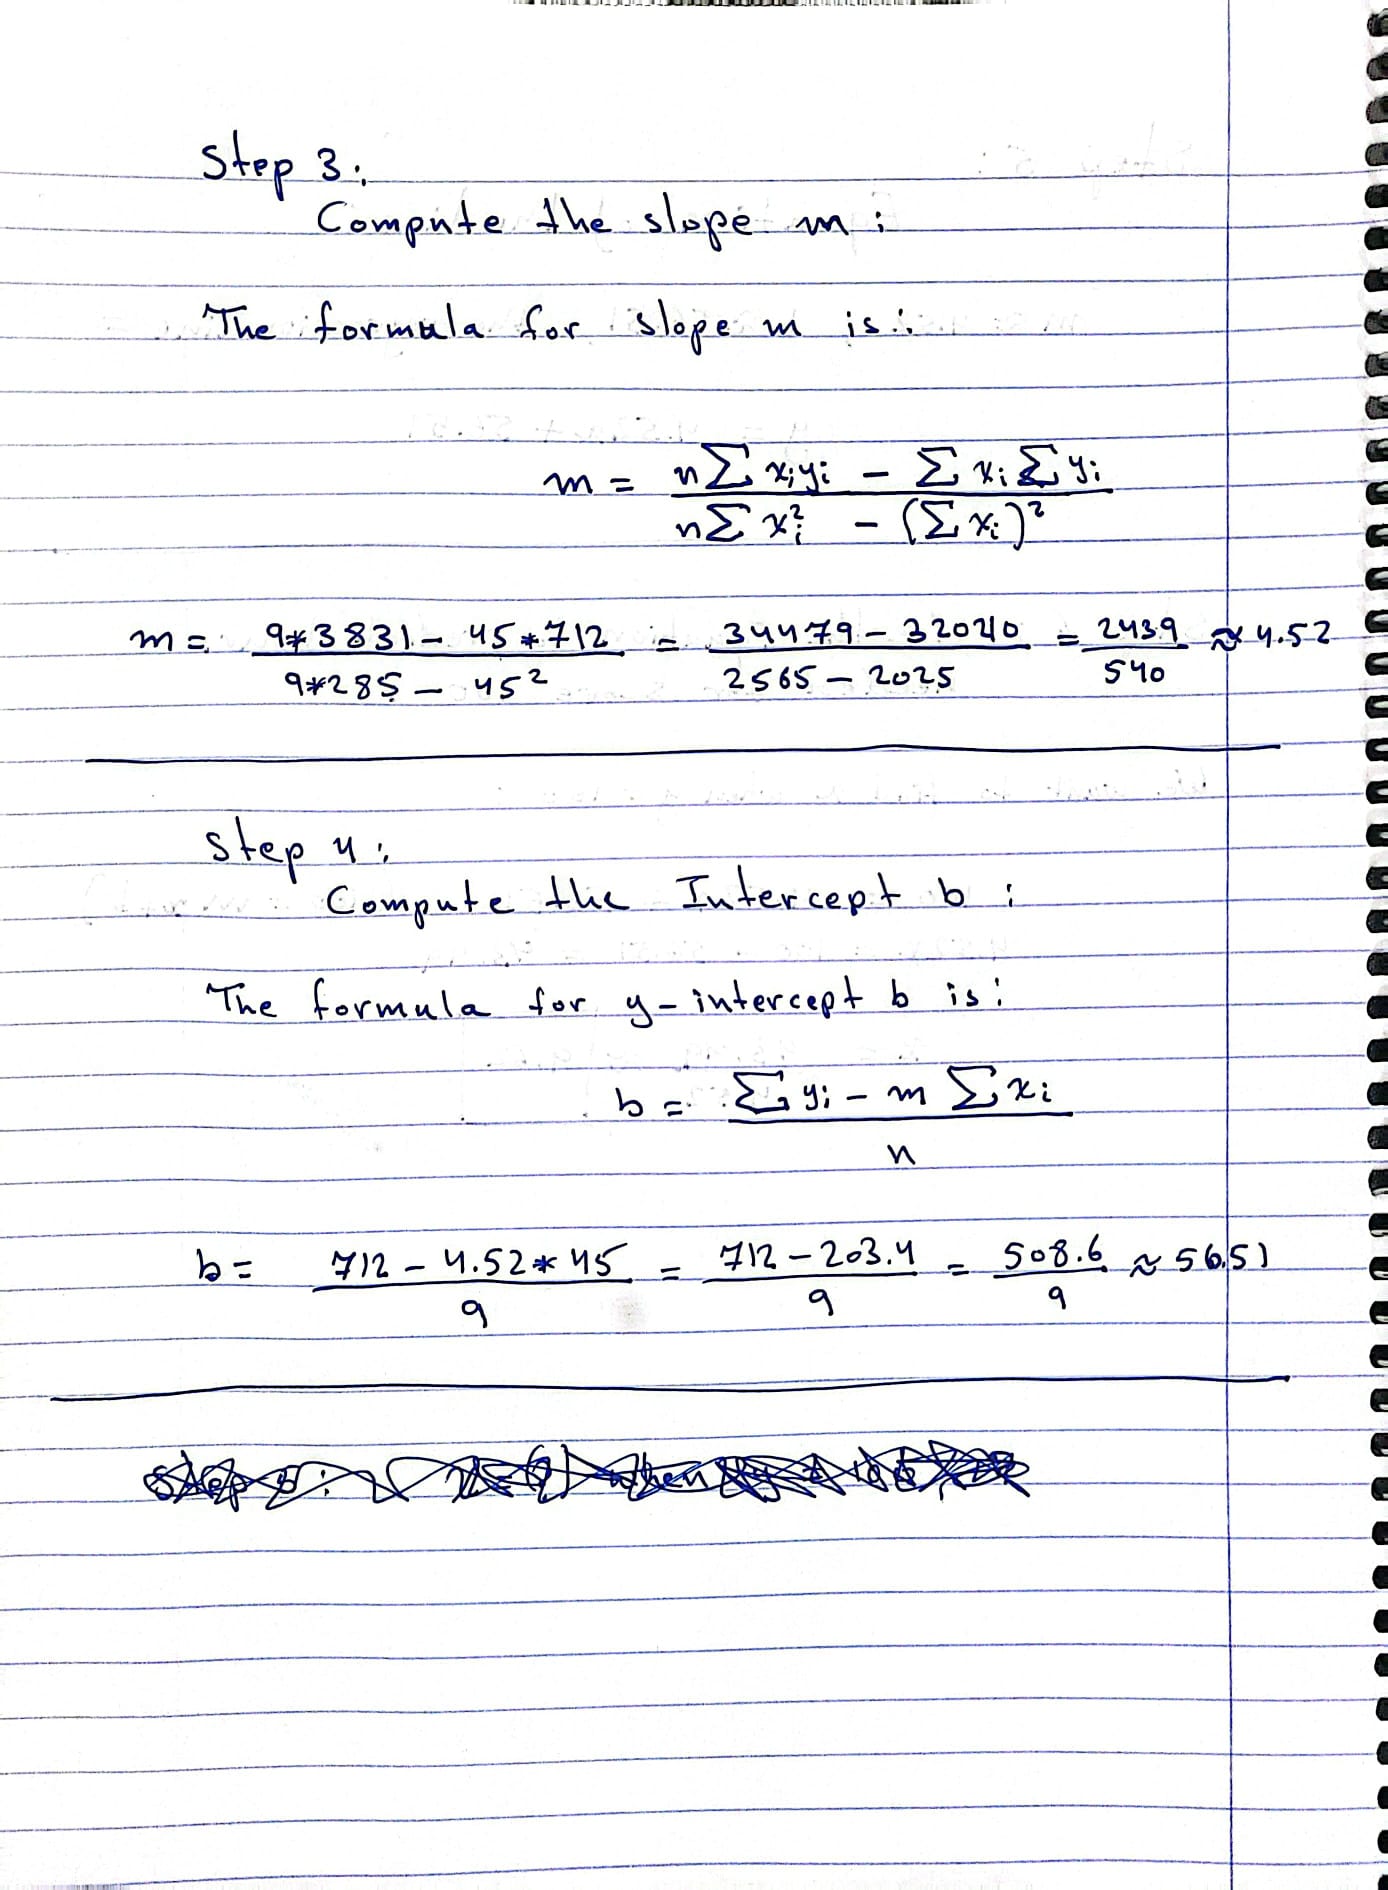 Step 3:
Compute the slope m :
The formula for slope m is:
m = n∑ xᵢyᵢ − ∑ xᵢ ∑ yᵢ / n∑ xᵢ² − (∑ xᵢ)²
m = 9*3831 − 45*712 / 9*285 − 45² = 34479 − 32040 / 2565 − 2025 = 2439 / 540 ≈ 4.52
Step 4:
Compute the Intercept b :
The formula for y-intercept b is:
b = ∑ yᵢ − m ∑ xᵢ / n
b = 712 − 4.52*45 / 9 = 712 − 203.4 / 9 = 508.6 / 9 ≈ 56.51